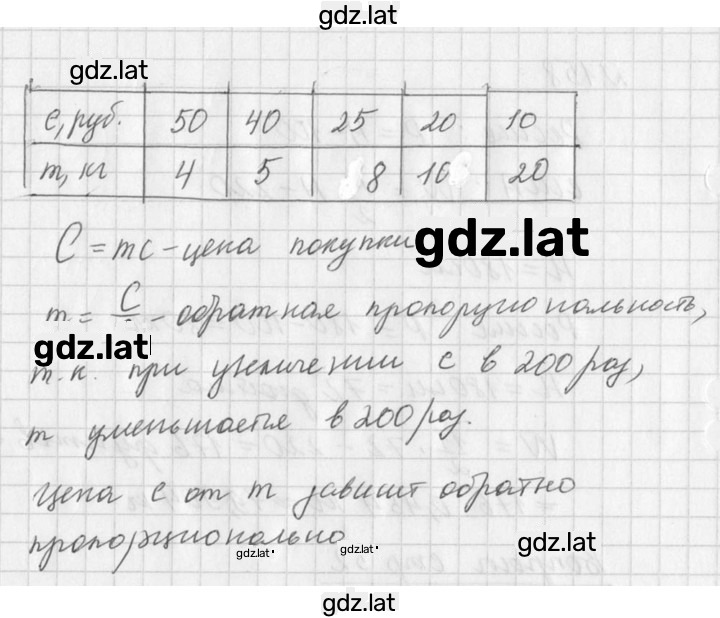 gdz.lat
gdz.lat
c, руб. 50 40 25 20 10
m, кг 4 5 8 10 20
C = mc - цена покупки
gdz.lat
m = C - обратная пропорциональность,
gdz.lat
т.к. при увеличении c в 200 раз,
m уменьшается в 200 раз.
Цена c от m зависит обратно
пропорционально
gdz.lat
gdz.lat
gdz.lat
gdz.lat